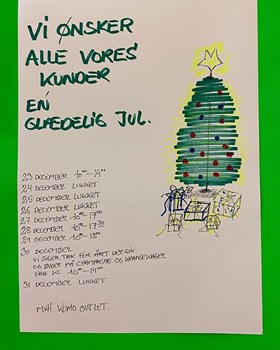 Vi ØNSKER
ALLE VORES
KUNDER
EN
GLÆDELIG JUL.
23 DECEMBER
24 DECEMBER LUKKET
25 DECEMBER LUKKET
26 DECEMBER LUKKET
27 DECEMBER 10⁰⁰-17⁰⁰
28 DECEMBER 10⁰⁰-17³⁰
29 DECEMBER 10⁰⁰-18⁰⁰
30 DECEMBER
Vi SIGER TAK FOR ÅRET DER GIK
OG BYDER PÅ CHAMPAGNE OG KRANSEKAGER
FRA KL 10⁰⁰-14⁰⁰
31 DECEMBER LUKKET
MVH OUTLET.